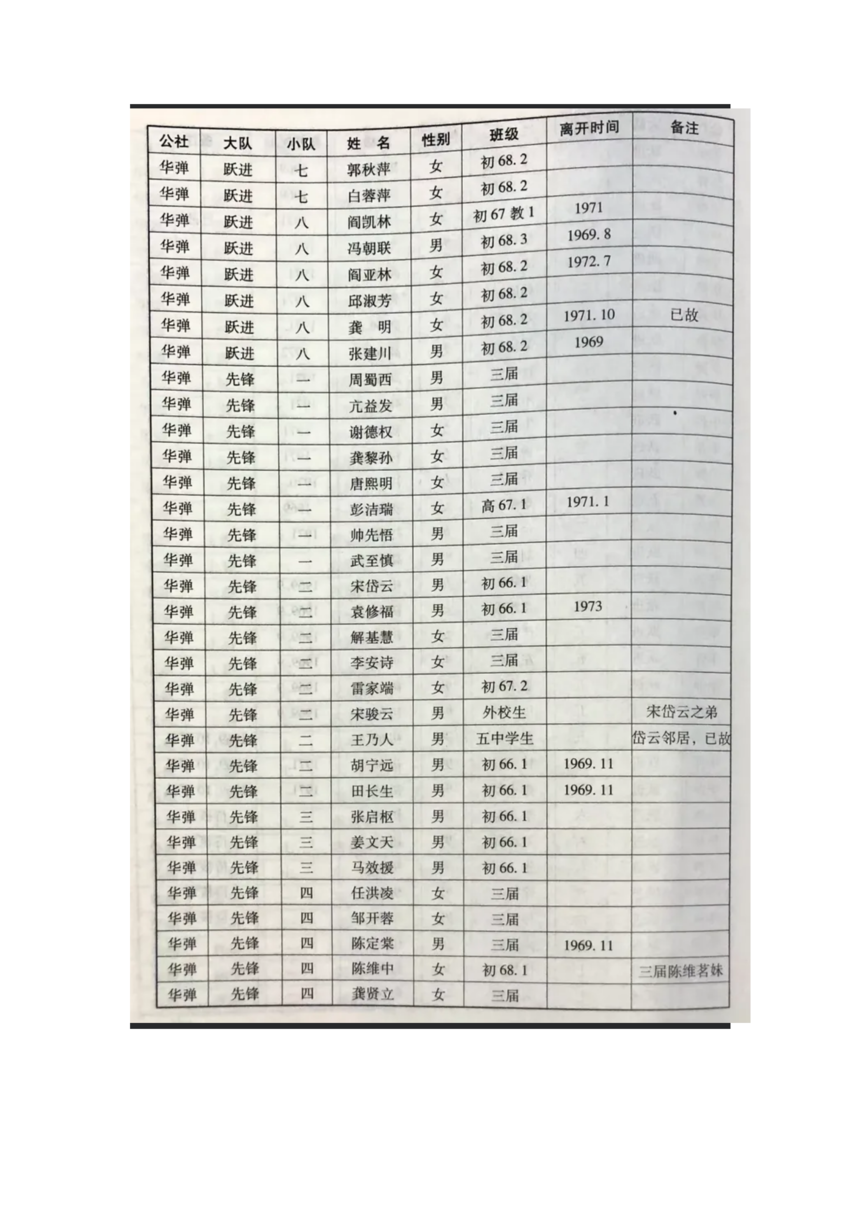 公社 大队 小队 姓 名 性别 班级 离开时间 备注
华弹 跃进 七 郭秋萍 女 初68.2
华弹 跃进 七 白蓉萍 女 初68.2
华弹 跃进 八 阎凯林 女 初67教1 1971
华弹 跃进 八 冯朝联 男 初68.3 1969.8
华弹 跃进 八 阎亚林 女 初68.2 1972.7
华弹 跃进 八 邱淑芳 女 初68.2
华弹 跃进 八 龚 明 女 初68.2 1971.10 已故
华弹 跃进 八 张建川 男 初68.2 1969
华弹 先锋 一 周蜀西 男 三届
华弹 先锋 一 亢益发 男 三届
华弹 先锋 一 谢德权 女 三届
华弹 先锋 一 龚黎孙 女 三届
华弹 先锋 一 唐熙明 女 三届
华弹 先锋 一 彭洁瑞 女 高67.1 1971.1
华弹 先锋 一 帅先悟 男 三届
华弹 先锋 一 武至慎 男 三届
华弹 先锋 二 宋岱云 男 初66.1
华弹 先锋 二 袁修福 男 初66.1 1973
华弹 先锋 二 解基慧 女 三届
华弹 先锋 二 李安诗 女 三届
华弹 先锋 二 雷家端 女 初67.2
华弹 先锋 二 宋骏云 男 外校生 宋岱云之弟
华弹 先锋 二 王乃人 男 五中学生 岱云邻居，已故
华弹 先锋 二 胡宁远 男 初66.1 1969.11
华弹 先锋 二 田长生 男 初66.1 1969.11
华弹 先锋 三 张启枢 男 初66.1
华弹 先锋 三 姜文天 男 初66.1
华弹 先锋 三 马效援 男 初66.1
华弹 先锋 四 任洪凌 女 三届
华弹 先锋 四 邹开蓉 女 三届
华弹 先锋 四 陈定棠 男 三届 1969.11
华弹 先锋 四 陈维中 女 初68.1 三届陈维茗妹
华弹 先锋 四 龚贤立 女 三届